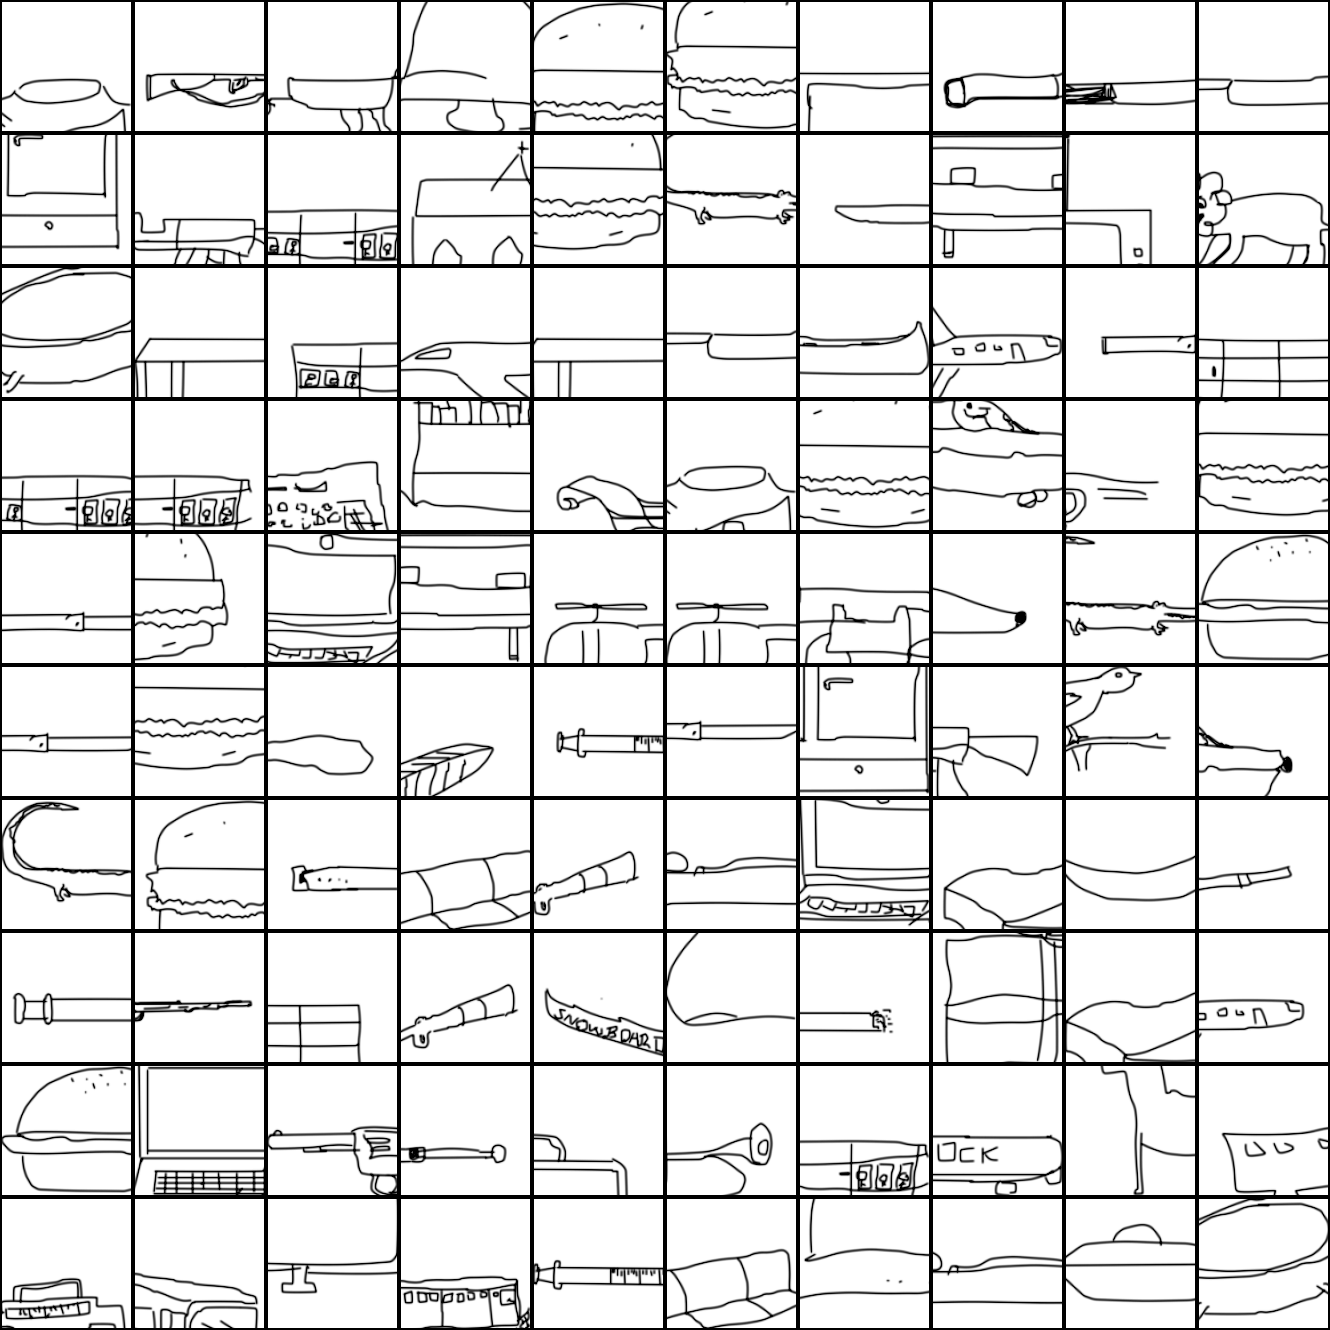 SNOWBOARD
OCK